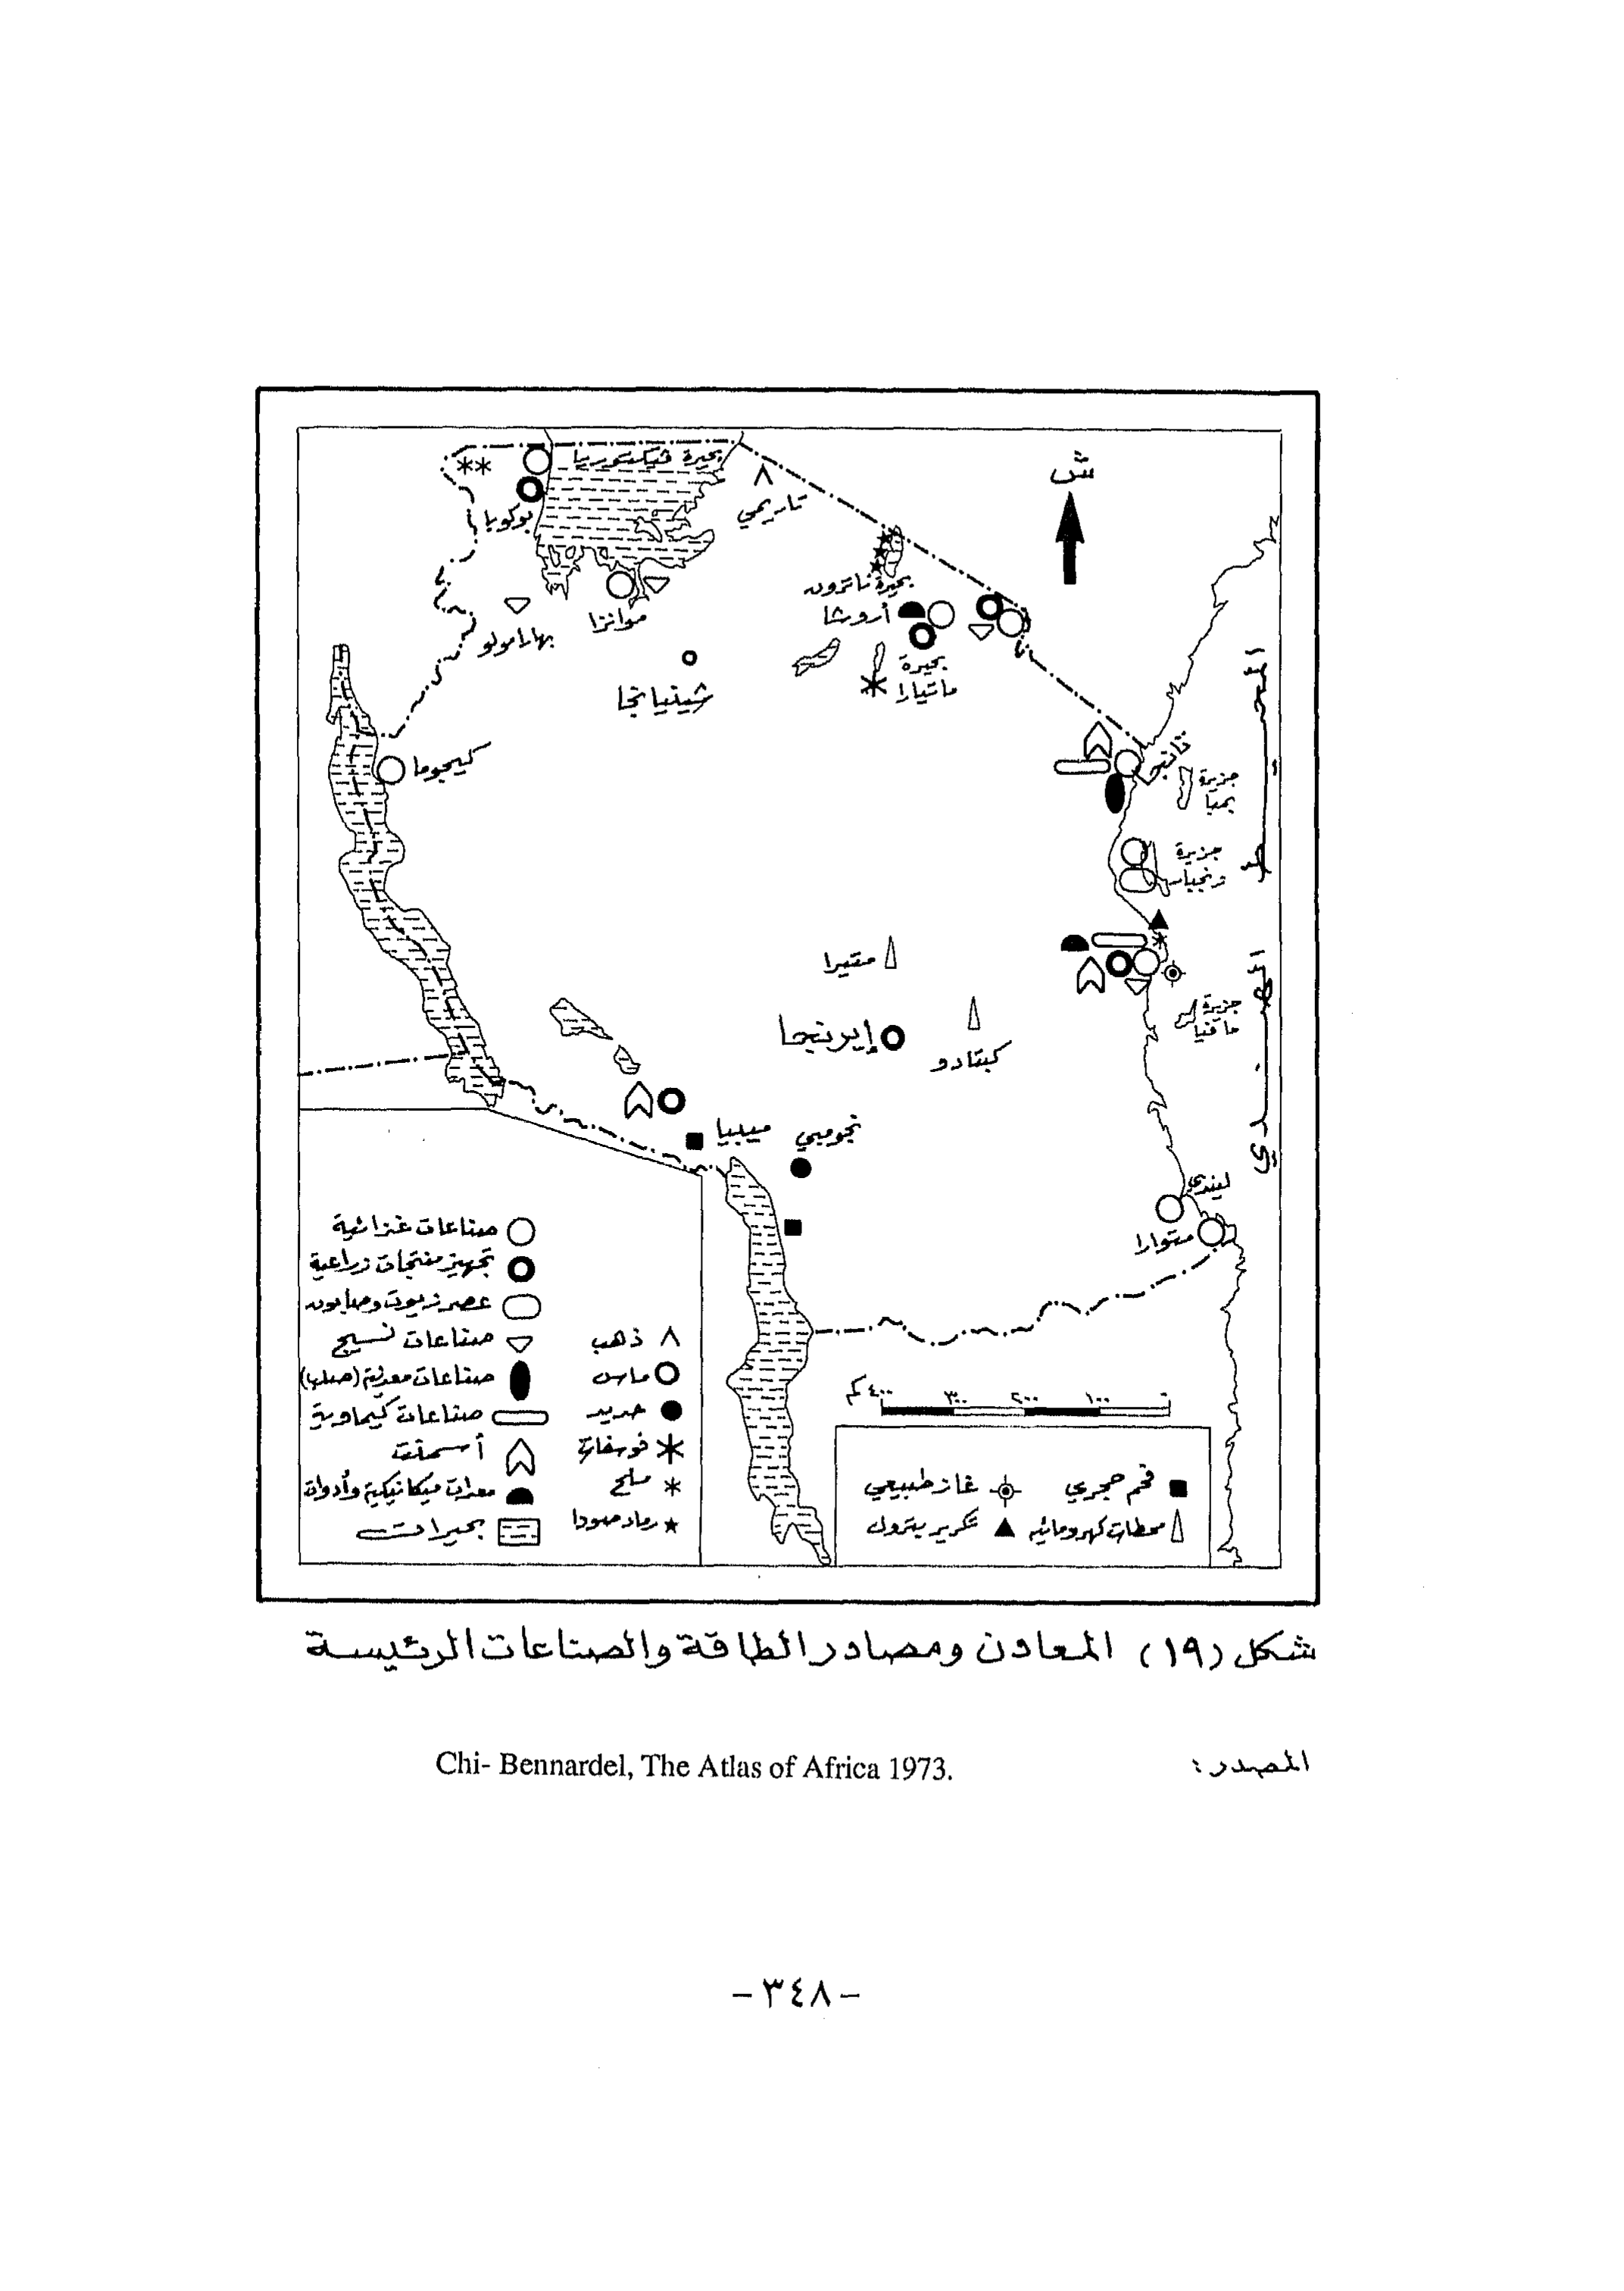 بحيرة فيكتوريا
ش
تاريمي
بوكوبا
بحيرة ناترون
أروشا
موانزا
بهارامولو
بحيرة
مانيارا
شينيانجا
المحيط الهندي
كيجوما
جزيرة
بمبا
جزيرة
زنجبار
متيرا
إيرنيجا
كيتادو
جزيرة
مافيا
ميبيا
نجومبي
ليندي
متوارا
صناعات غذائية
تجهيز منتجات زراعية
عصر زيوت وصابون
صناعات نسيج
صناعات معدنية (صلب)
صناعات كيماوية
أسمنت
معدات ميكانيكية وأدوات
بحيرات
ذهب
ماس
حديد
فوسفات
ملح
رماد صودا
٤٠٠ كم ٣٠٠ ٢٠٠ ١٠٠ ٠
فحم حجري
غاز طبيعي
محطات كهرومائية
تكرير بترول
شكل (١٩) المعادن ومصادر الطاقة والصناعات الرئيسة
المصدر: Chi- Bennardel, The Atlas of Africa 1973.
- ٣٤٨ -